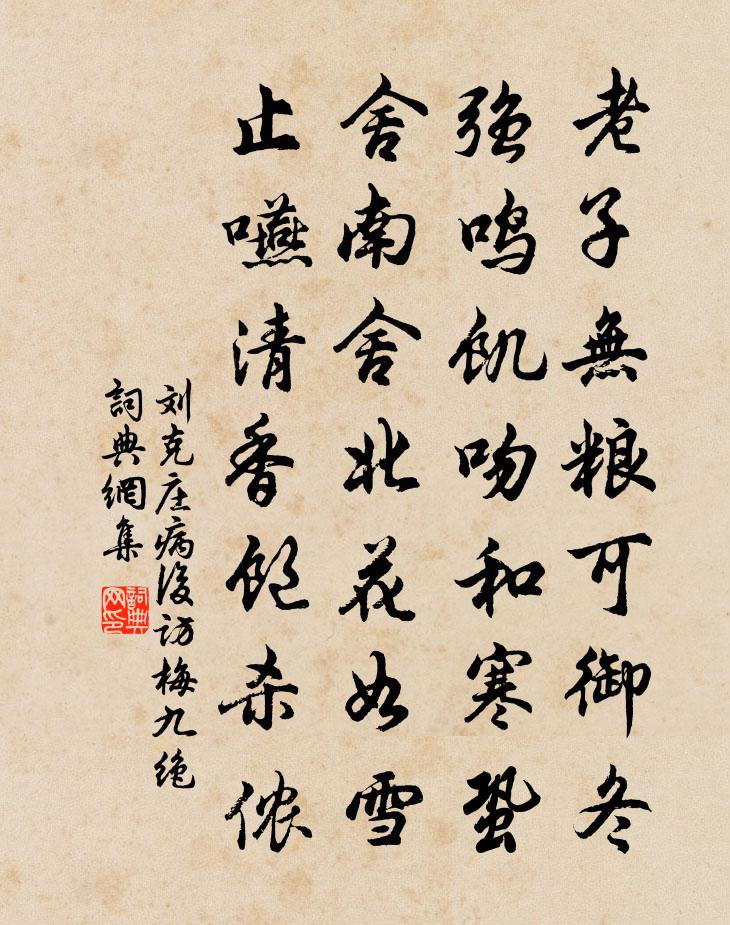 老子無粮可御冬
强鸣饥吻和寒蛩
舍南舍北花如雪
止嚥清香饱杀侬
刘克庄病後访梅九绝
詞典網集
詞典网印